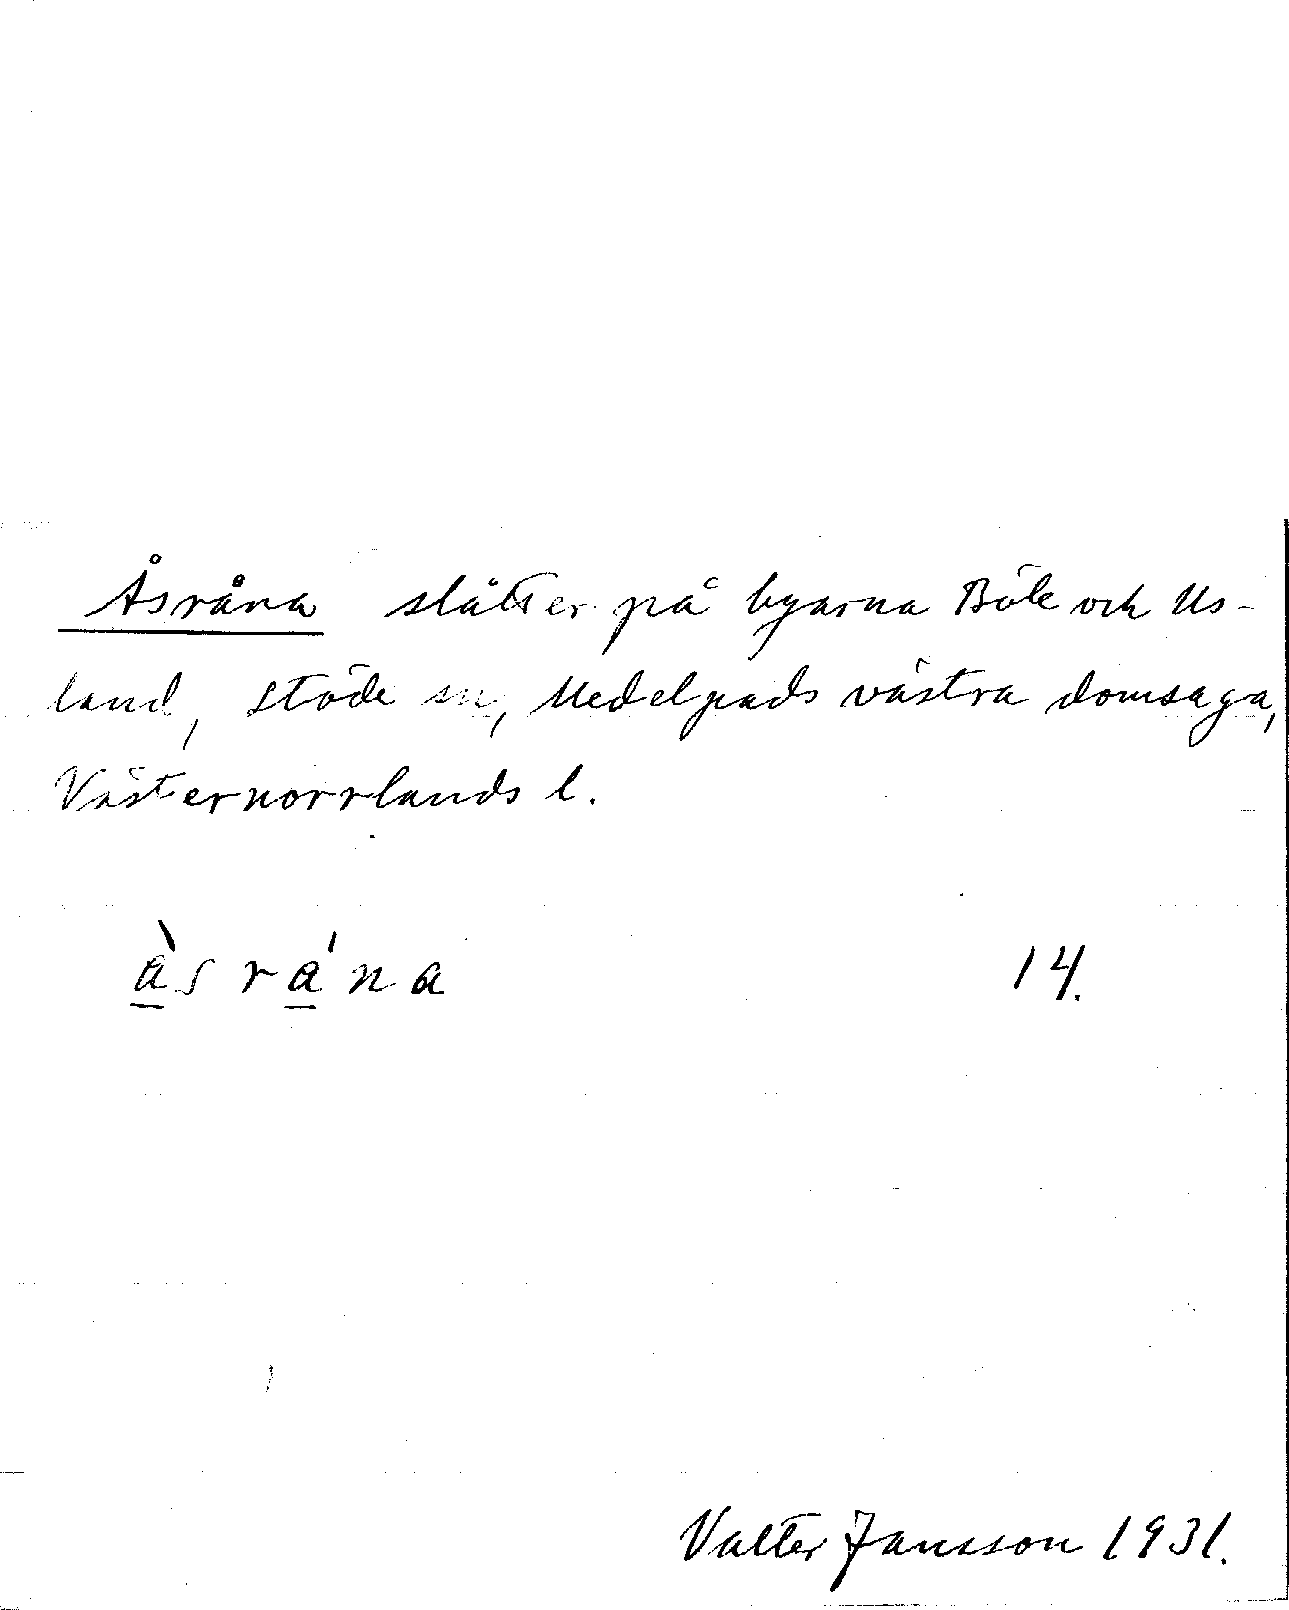 Åsråna slåtter på byarna Böle och Us-
land, Stöde sn, Medelpads västra domsaga,
Västernorrlands l.
à̲srá̲na 14.
Valter Jansson 1931.